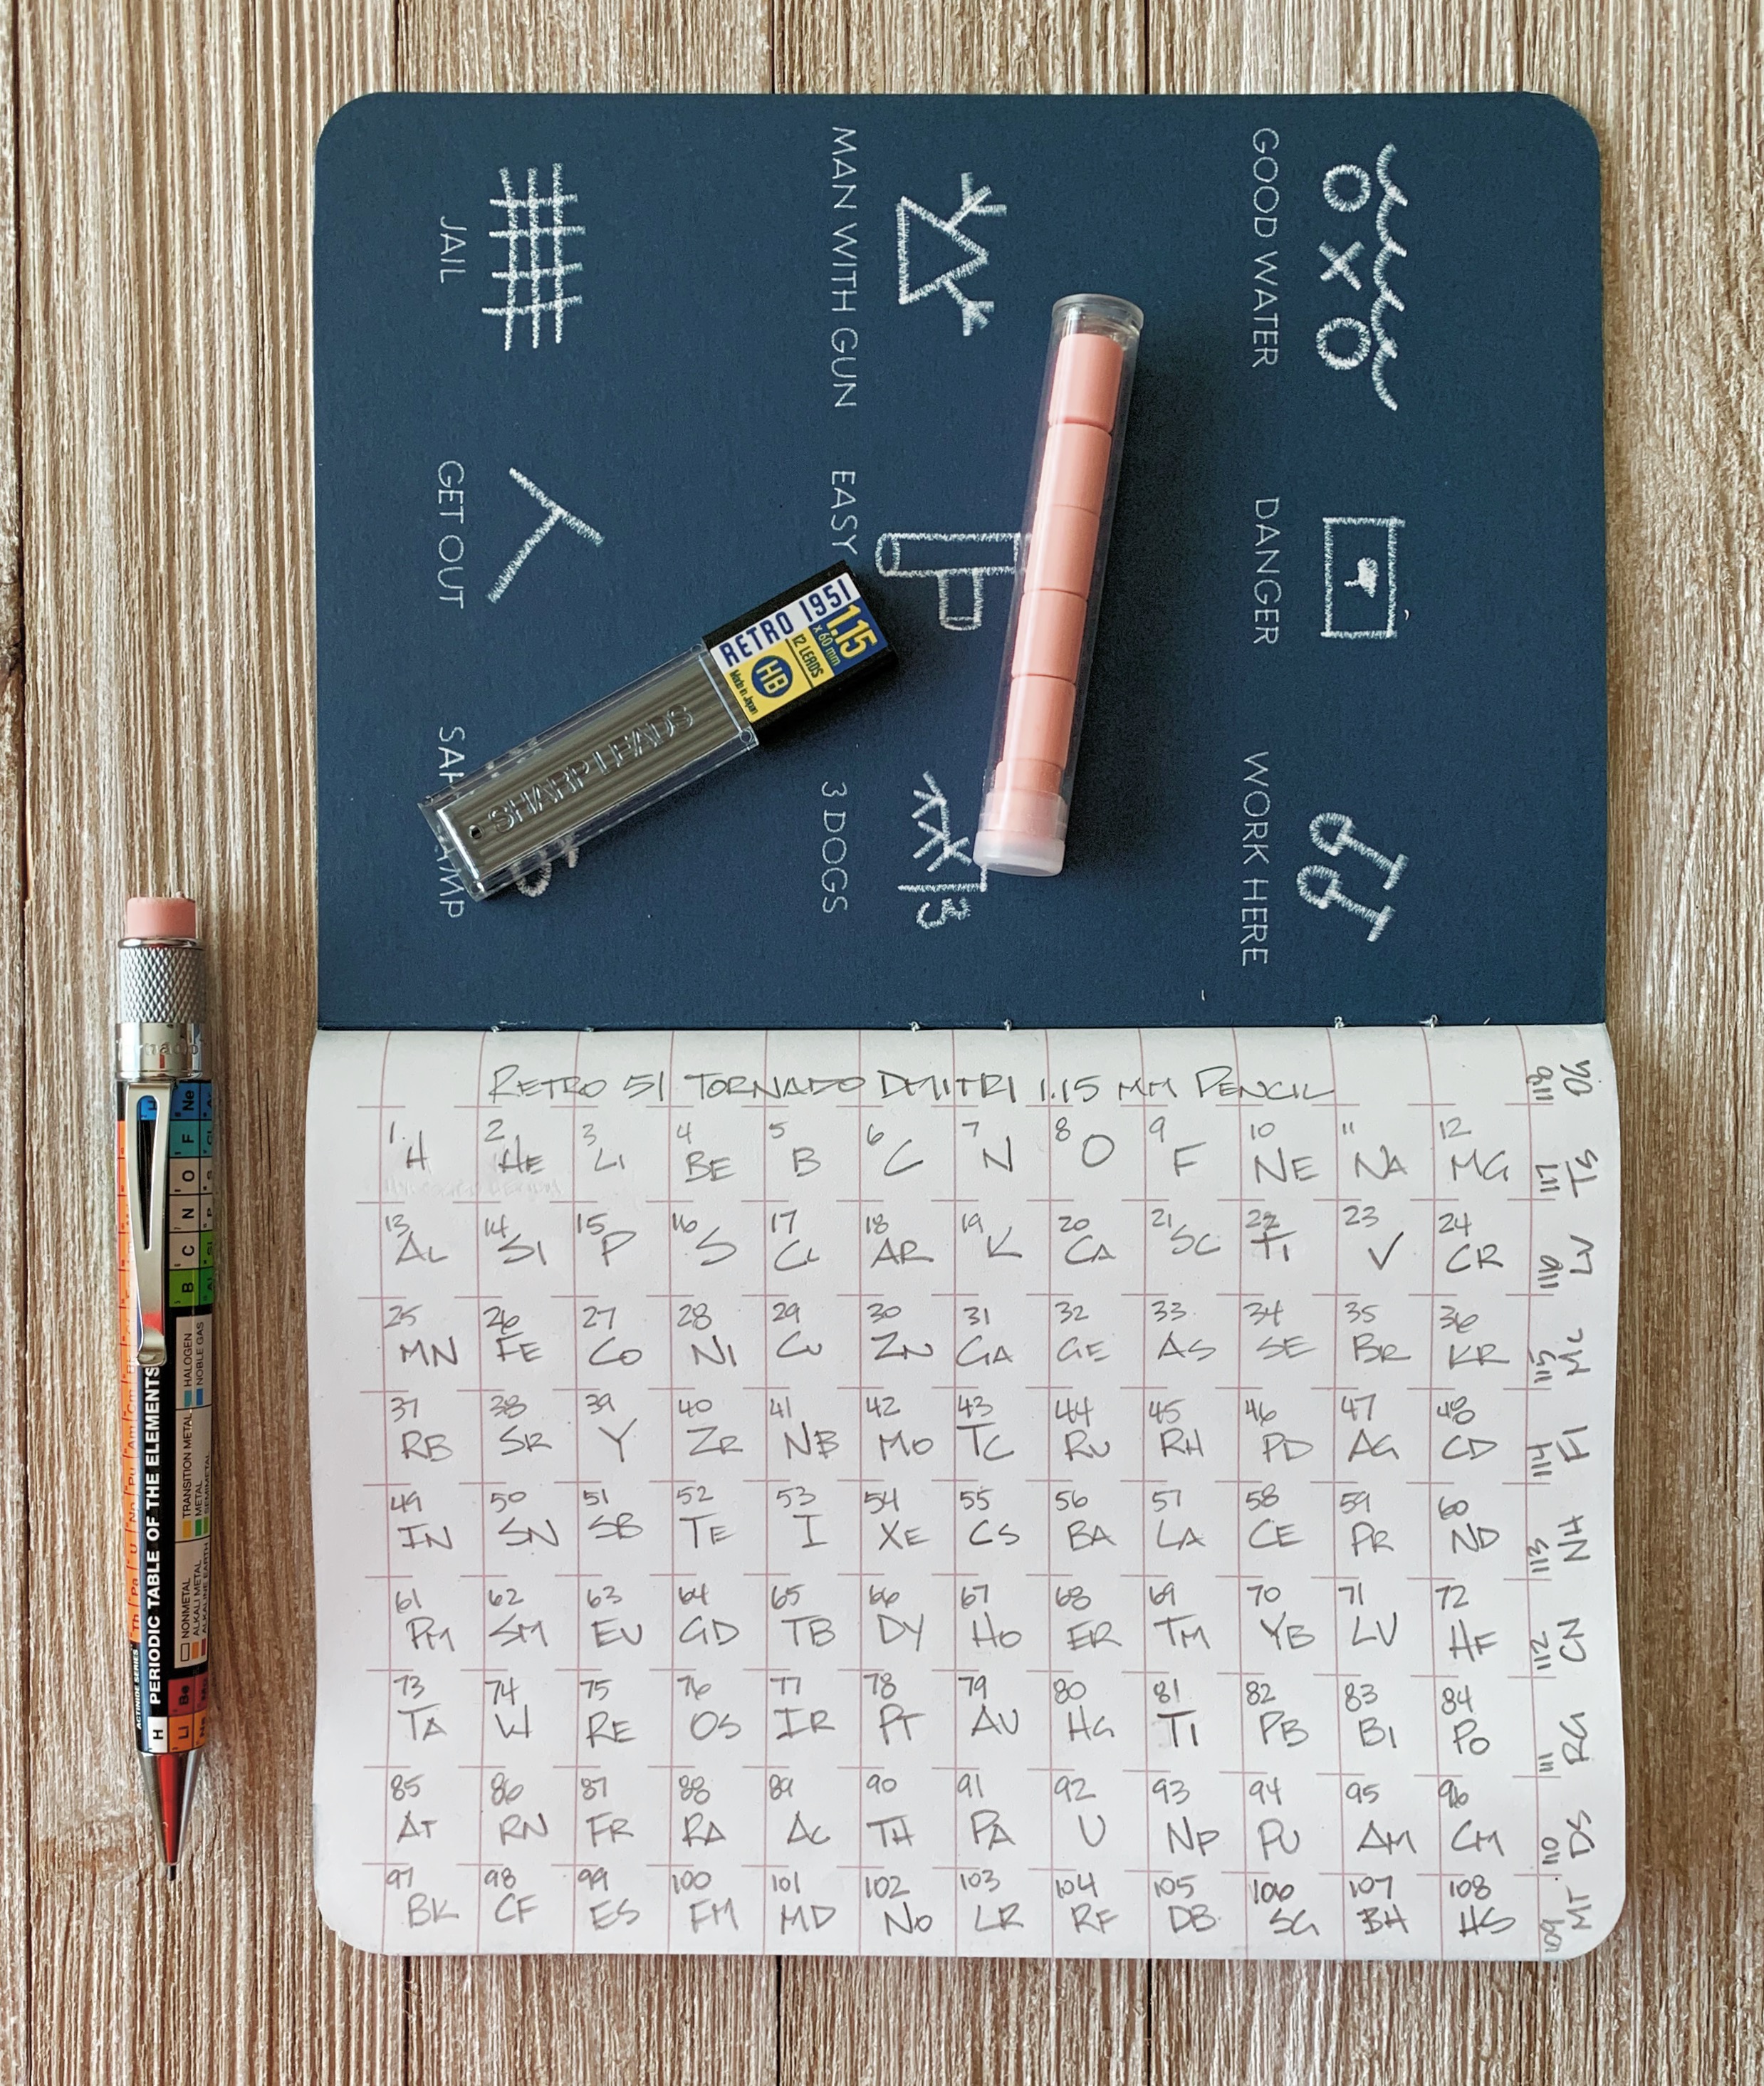 GOOD WATER
DANGER
WORK HERE
MAN WITH GUN
EASY
3 DOGS
3
JAIL
GET OUT
RETRO 1951
1.15
x 60 mm
12 LEADS
HB
Made in Japan
SHARP LEADS
RETRO 51 TORNADO DMITRI 1.15 MM PENCIL
1 2 3 4 5 6 7 8 9 10 11 12
H HE LI BE B C N O F NE NA MG
13 14 15 16 17 18 19 20 21 22 23 24
AL SI P S CL AR K CA SC TI V CR
25 26 27 28 29 30 31 32 33 34 35 36
MN FE CO NI CU ZN GA GE AS SE BR KR
37 38 39 40 41 42 43 44 45 46 47 48
RB SR Y ZR NB MO TC RU RH PD AG CD
49 50 51 52 53 54 55 56 57 58 59 60
IN SN SB TE I XE CS BA LA CE PR ND
61 62 63 64 65 66 67 68 69 70 71 72
PM SM EU GD TB DY HO ER TM YB LU HF
73 74 75 76 77 78 79 80 81 82 83 84
TA W RE OS IR PT AU HG TI PB BI PO
85 86 87 88 89 90 91 92 93 94 95 96
AT RN FR RA AC TH PA U NP PU AM CM
97 98 99 100 101 102 103 104 105 106 107 108
BK CF ES FM MD NO LR RF DB SG BH HS
MT DS RG CN NH FL MC LV TS OG
109 110 111 112 113 114 115 116 117 118
PERIODIC TABLE OF THE ELEMENTS
ACTINIDE SERIES
NONMETAL
ALKALI METAL
ALKALINE EARTH
TRANSITION METAL
METAL
SEMIMETAL
HALOGEN
NOBLE GAS
H
Li Be
B C N O F Ne